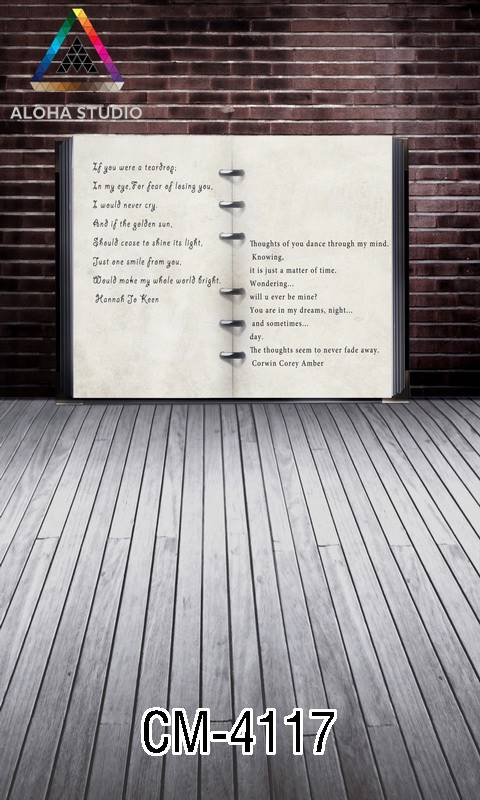 ALOHA STUDIO
If you were a teardrop;
In my eye,For fear of losing you,
I would never cry.
And if the golden sun,
Should cease to shine its light,
Just one smile from you,
Would make my whole world bright.
Hannah Jo Keen
Thoughts of you dance through my mind.
Knowing,
it is just a matter of time.
Wondering...
will u ever be mine?
You are in my dreams, night...
and sometimes...
day.
The thoughts seem to never fade away.
Corwin Corey Amber
CM-4117